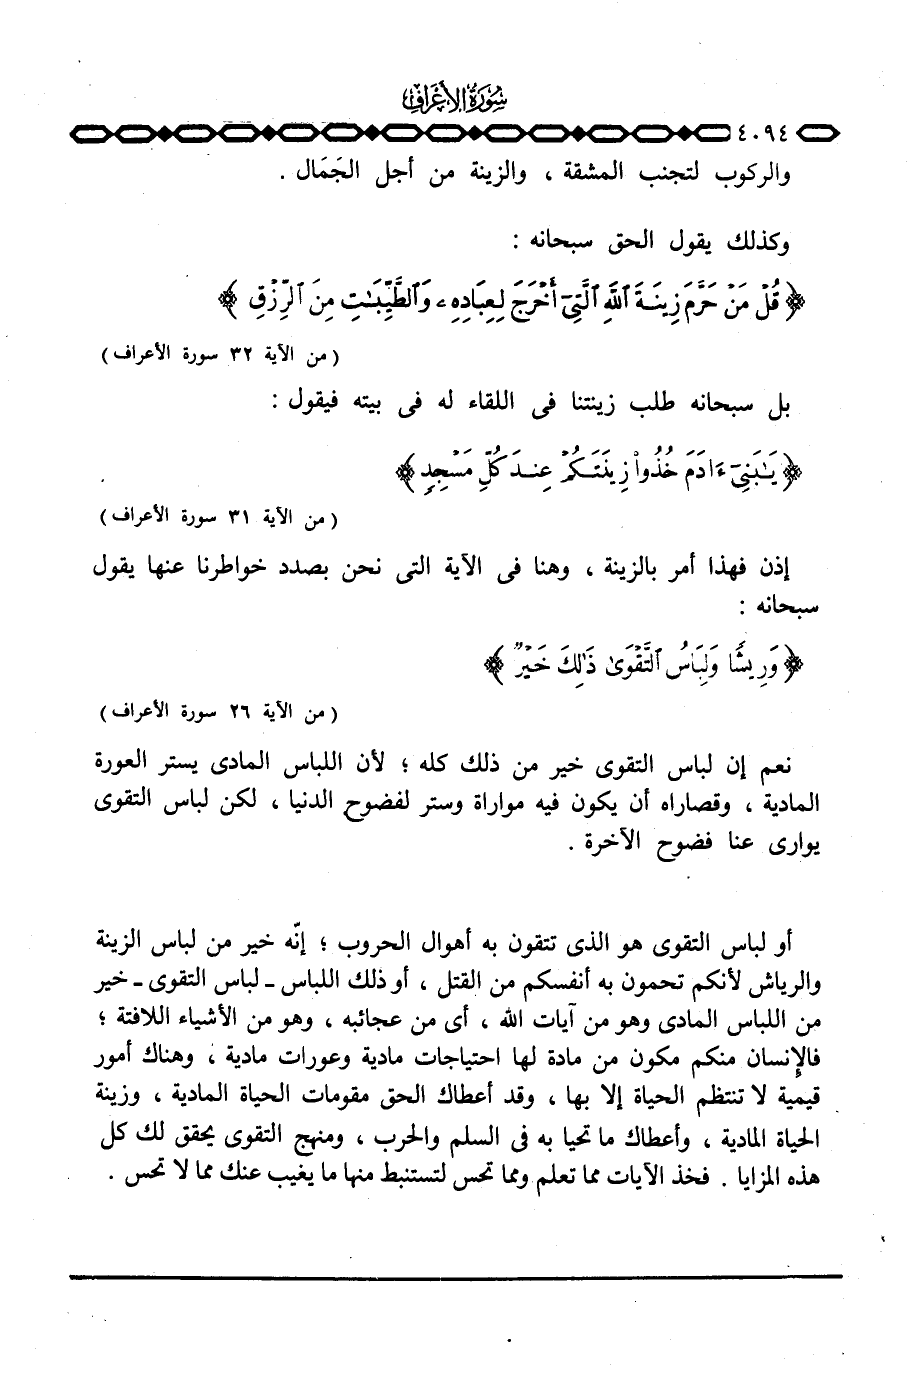 سُورَةُ الأَعْرَافِ
٤٠٩٤
والركوب لتجنب المشقة ، والزينة من أجل الجَمَال .
وكذلك يقول الحق سبحانه :
﴿ قُلْ مَنْ حَرَّمَ زِينَةَ ٱللَّهِ ٱلَّتِىٓ أَخْرَجَ لِعِبَادِهِۦ وَٱلطَّيِّبَـٰتِ مِنَ ٱلرِّزْقِ ﴾
( من الآية ٣٢ سورة الأعراف )
بل سبحانه طلب زينتنا فى اللقاء له فى بيته فيقول :
﴿ يَـٰبَنِىٓ ءَادَمَ خُذُوا۟ زِينَتَكُمْ عِندَ كُلِّ مَسْجِدٍ ﴾
( من الآية ٣١ سورة الأعراف )
إذن فهذا أمر بالزينة ، وهنا فى الآية التى نحن بصدد خواطرنا عنها يقول
سبحانه :
﴿ وَرِيشًا وَلِبَاسُ ٱلتَّقْوَىٰ ذَٰلِكَ خَيْرٌ ﴾
( من الآية ٢٦ سورة الأعراف )
نعم إن لباس التقوى خير من ذلك كله ؛ لأن اللباس المادى يستر العورة
المادية ، وقصاراه أن يكون فيه مواراة وستر لفضوح الدنيا ، لكن لباس التقوى
يوارى عنا فضوح الآخرة .
أو لباس التقوى هو الذى تتقون به أهوال الحروب ؛ إنّه خير من لباس الزينة
والرياش لأنكم تحمون به أنفسكم من القتل ، أو ذلك اللباس ـ لباس التقوى ـ خير
من اللباس المادى وهو من آيات الله ، أى من عجائبه ، وهو من الأشياء اللافتة ؛
فالإنسان منكم مكون من مادة لها احتياجات مادية وعورات مادية ، وهناك أمور
قيمية لا تنتظم الحياة إلا بها ، وقد أعطاك الحق مقومات الحياة المادية ، وزينة
الحياة المادية ، وأعطاك ما تحيا به فى السلم والحرب ، ومنهج التقوى يحقق لك كل
هذه المزايا . فخذ الآيات مما تعلم ومما تحس لتستنبط منها ما يغيب عنك مما لا تحس .